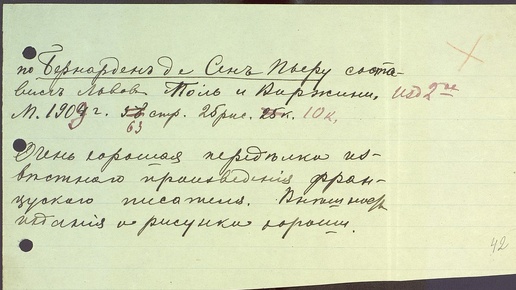 по Бернарденъ де Сенъ Пьеру соста-
вилъ Львовъ Поль и Виржини. изд 2ое
М. 1909 г. 58 стр. 2 брис. 25 к. 10 к.
63
Очень хорошая передѣлка из-
вѣстнаго произведенія фран-
цузскаго писателя. Внѣшность
изданія и рисунки хороши.
42